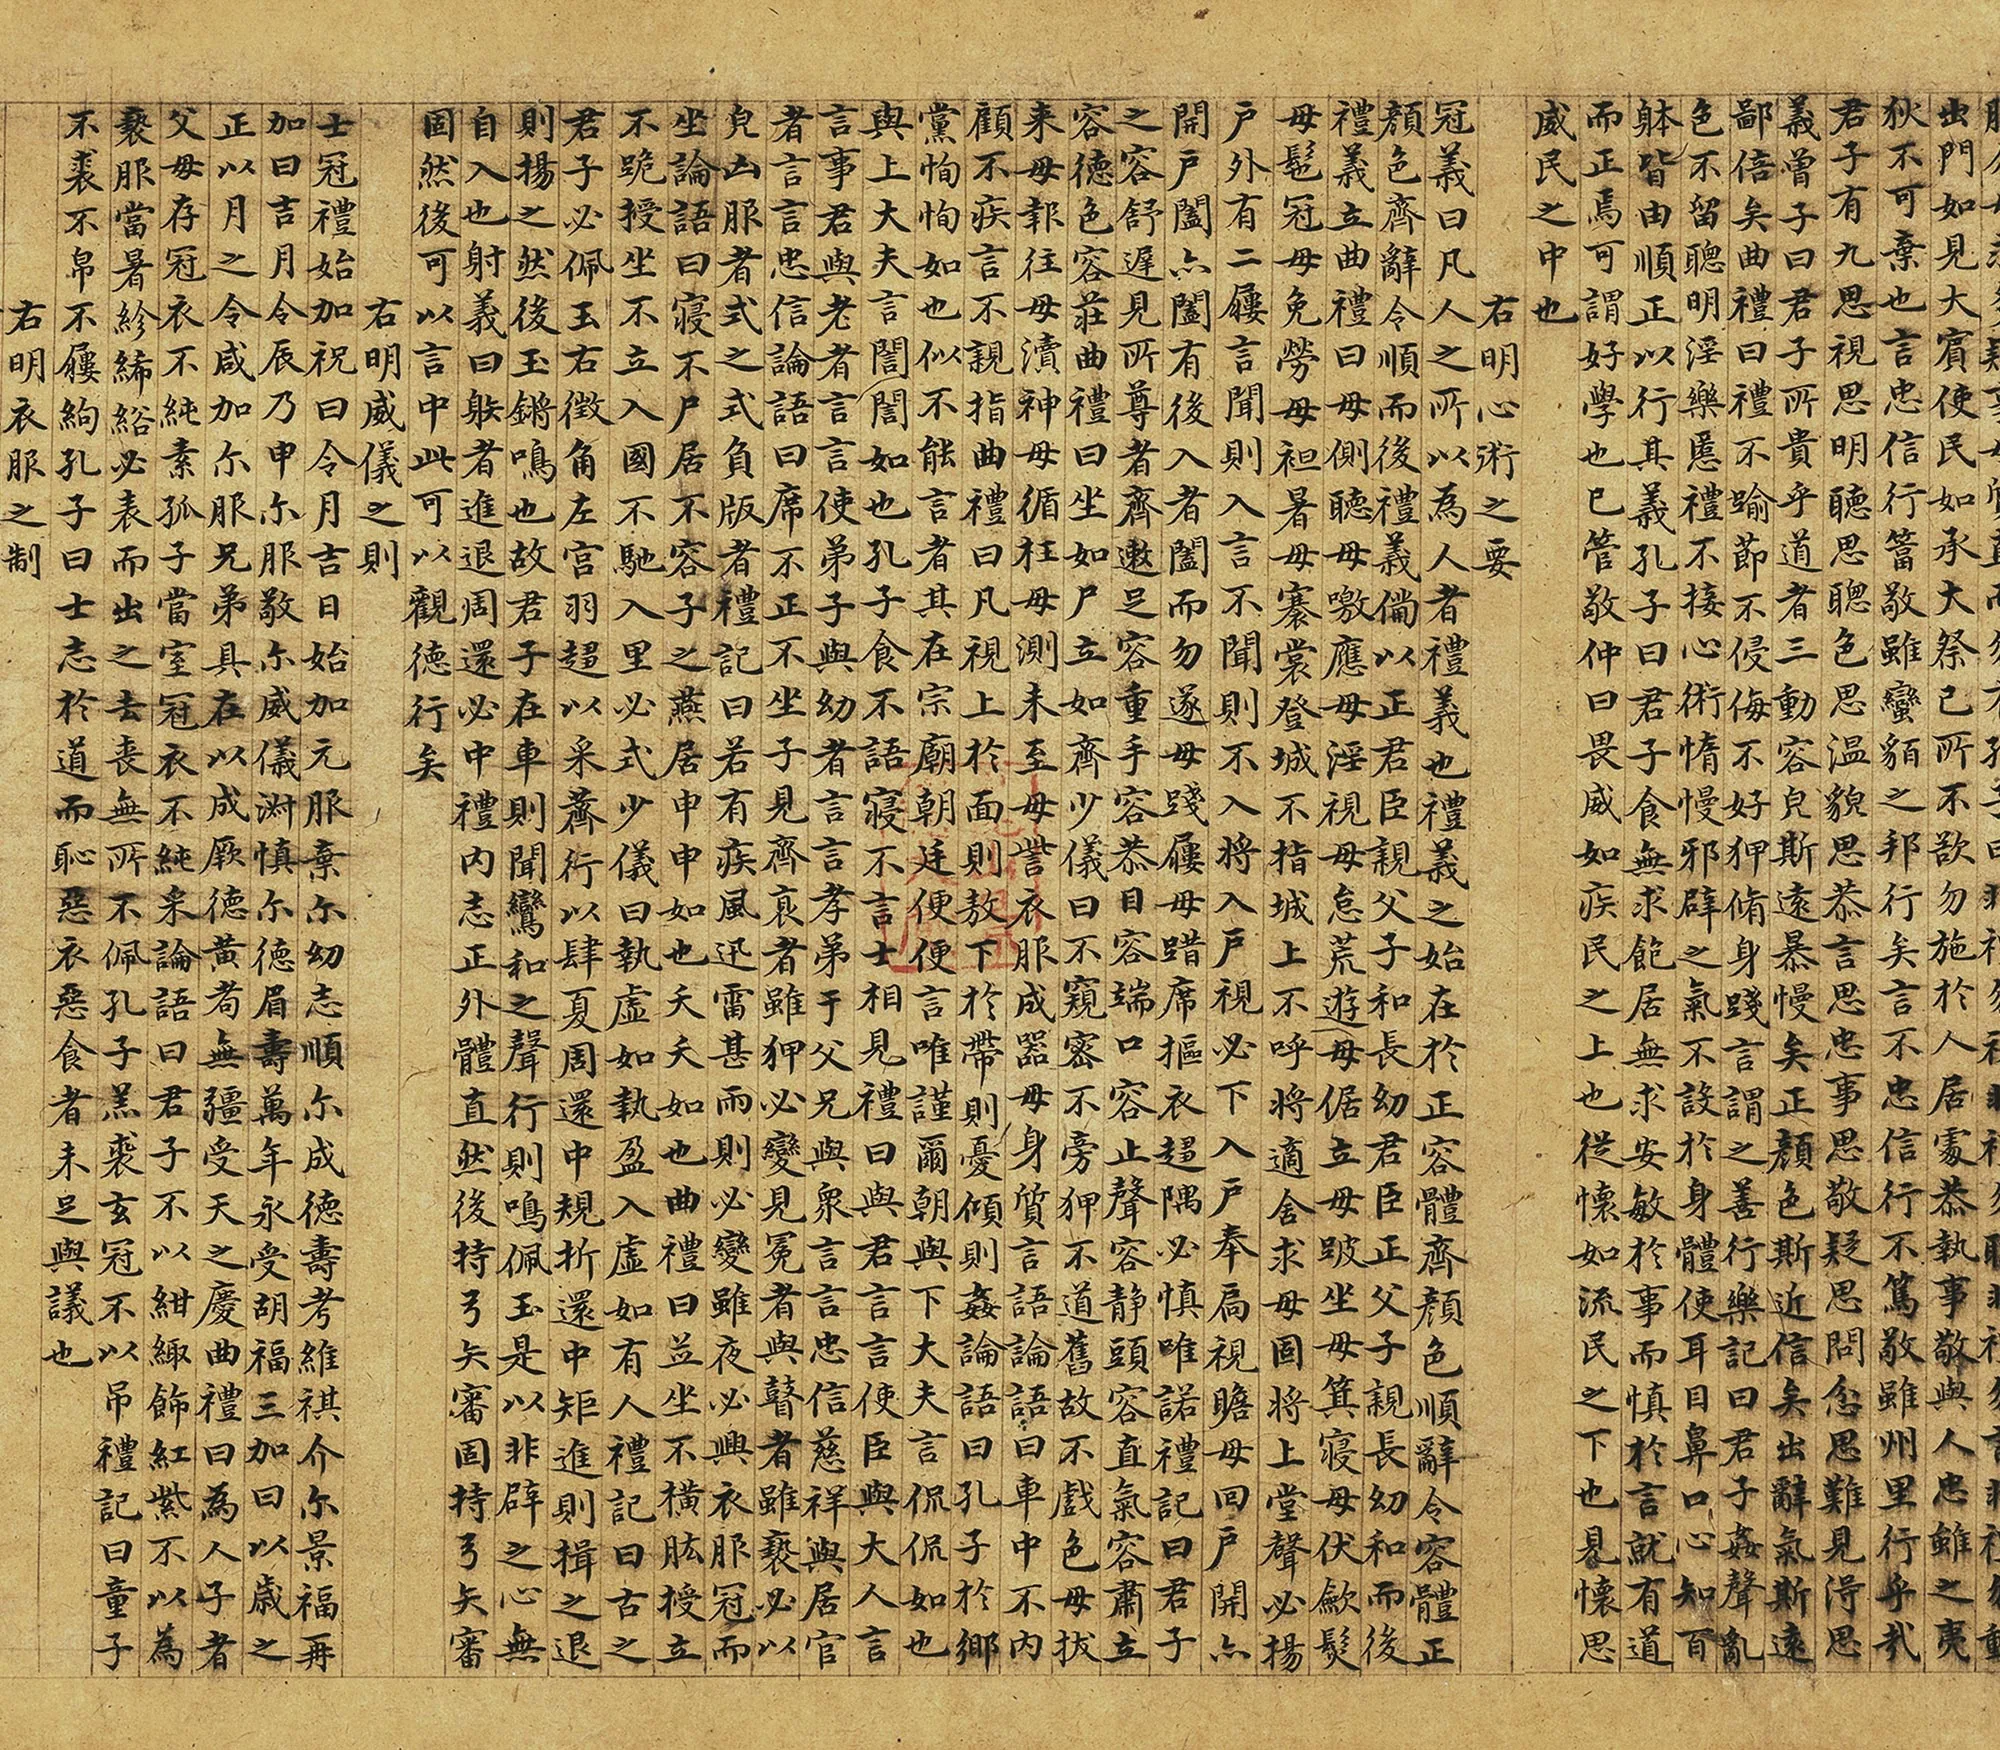 出門如見大賓使民如承大祭己所不欲勿施於人居處恭執事敬與人忠雖之夷
狄不可棄也言忠信行篤敬雖蠻貊之邦行矣言不忠信行不篤敬雖州里行乎哉
君子有九思視思明聽思聰色思溫貌思恭言思忠事思敬疑思問忿思難見得思
義曾子曰君子所貴乎道者三動容皃斯遠暴慢矣正顏色斯近信矣出辭氣斯遠
鄙倍矣曲禮曰禮不踰節不侵侮不好狎脩身踐言謂之善行樂記曰君子姦聲亂
色不留聰明淫樂慝禮不接心術惰慢邪辟之氣不設於身體使耳目鼻口心知百
躰皆由順正以行其義孔子曰君子食無求飽居無求安敏於事而慎於言就有道
而正焉可謂好學也已管敬仲曰畏威如疾民之上也從懷如流民之下也見懷思
威民之中也
右明心術之要
冠義曰凡人之所以為人者禮義也禮義之始在於正容體齊顏色順辭令容體正
顏色齊辭令順而後禮義備以正君臣親父子和長幼君臣正父子親長幼和而後
禮義立曲禮曰毋側聽毋噭應毋淫視毋怠荒遊毋倨立毋跛坐毋箕寢毋伏歛髮
毋髢冠毋免勞毋袒暑毋褰裳登城不指城上不呼將適舍求毋固將上堂聲必揚
戶外有二屨言聞則入言不聞則不入將入戶視必下入戶奉扃視瞻毋回戶開亦
開戶闔亦闔有後入者闔而勿遂毋踐屨毋踖席摳衣趨隅必慎唯諾禮記曰君子
之容舒遲見所尊者齊遬足容重手容恭目容端口容止聲容静頭容直氣容肅立
容德色容莊曲禮曰坐如尸立如齊少儀曰不窺密不旁狎不道舊故不戲色毋拔
来毋報往毋瀆神毋循枉毋測未至毋訾衣服成器毋身質言語論語曰車中不內
顧不疾言不親指曲禮曰凡視上於面則敖下於帶則憂傾則姦論語曰孔子於鄉
黨恂恂如也似不能言者其在宗廟朝廷便便言唯謹爾朝與下大夫言侃侃如也
與上大夫言誾誾如也孔子食不語寢不言士相見禮曰與君言言使臣與大人言
言事君與老者言言使弟子與幼者言言孝弟于父兄與衆言言忠信慈祥與居官
者言言忠信論語曰席不正不坐子見齊衰者雖狎必變見冕者與瞽者雖褻必以
皃凶服者式之式負版者禮記曰若有疾風迅雷甚雨則必變雖夜必興衣服冠而
坐論語曰寢不尸居不容子之燕居申申如也夭夭如也曲禮曰並坐不橫肱授立
不跪授坐不立入國不馳入里必式少儀曰執虛如執盈入虛如有人禮記曰古之
君子必佩玉右徵角左宮羽趨以采薺行以肆夏周還中規折還中矩進則揖之退
則揚之然後玉鏘鳴也故君子在車則聞鸞和之聲行則鳴佩玉是以非辟之心無
自入也射義曰射者進退周還必中禮內志正外體直然後持弓矢審固持弓矢審
固然後可以言中此可以觀德行矣
右明威儀之則
士冠禮始加祝曰令月吉日始加元服棄尔幼志順尔成德壽考維祺介尔景福再
加曰吉月令辰乃申尔服敬尔威儀淑慎尔德眉壽萬年永受胡福三加曰以歲之
正以月之令咸加尔服兄弟具在以成厥德黃耇無疆受天之慶曲禮曰為人子者
父母存冠衣不純素孤子當室冠衣不純采論語曰君子不以紺緅飾紅紫不以為
褻服當暑袗絺綌必表而出之去喪無所不佩孔子羔裘玄冠不以吊禮記曰童子
不裘不帛不屨絇孔子曰士志於道而恥惡衣惡食者未足與議也
右明衣服之制